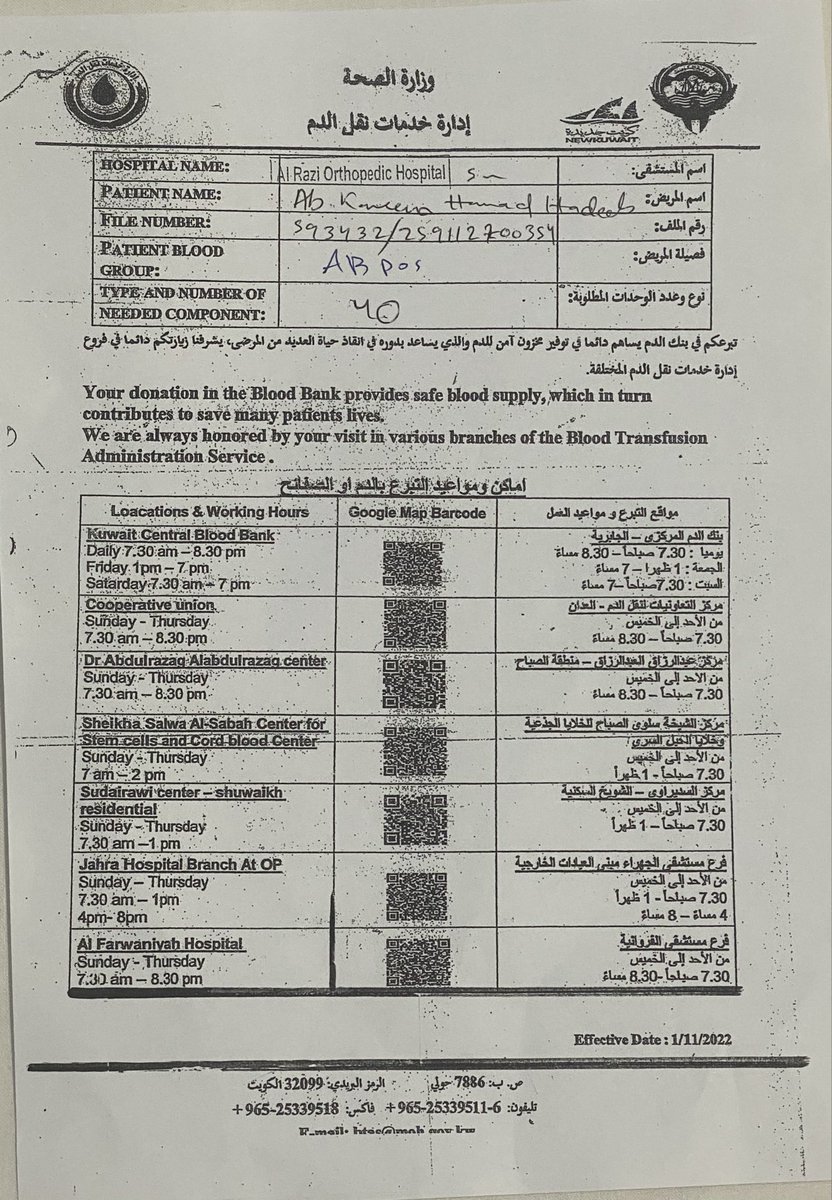 وزارة الصحة
إدارة خدمات نقل الدم
NEWKUWAIT
HOSPITAL NAME: Al Razi Orthopedic Hospital اسم المستشفى:
PATIENT NAME: Ab. Kareem Hamad Hadeeb اسم المريض:
FILE NUMBER: 593432/259112700354 رقم الملف:
PATIENT BLOOD GROUP: AB pos فصيلة المريض:
TYPE AND NUMBER OF NEEDED COMPONENT: نوع وعدد الوحدات المطلوبة:
تبرعكم في بنك الدم يساهم دائما في توفير مخزون آمن للدم والذي يساعد بدوره في انقاذ حياة العديد من المرضى، يشرفنا زيارتكم دائما في فروع
إدارة خدمات نقل الدم المختلفة.
Your donation in the Blood Bank provides safe blood supply, which in turn
contributes to save many patients lives.
We are always honored by your visit in various branches of the Blood Transfusion
Administration Service .
اماكن ومواعيد التبرع بالدم او الصفائح
Loacations & Working Hours Google Map Barcode مواقع التبرع و مواعيد العمل
Kuwait Central Blood Bank
Daily 7.30 am – 8.30 pm
Friday 1pm – 7 pm
Saturday 7.30 am – 7 pm
بنك الدم المركزي – الجابرية
يوميا : 7.30 صباحاً – 8.30 مساءً
الجمعة : 1 ظهرا – 7 مساءً
السبت : 7.30صباحاً – 7 مساءً
Cooperative union
Sunday - Thursday
7.30 am – 8.30 pm
مركز التعاونيات لنقل الدم - العدان
من الأحد إلى الخميس
7.30 صباحاً – 8.30 مساءً
Dr Abdulrazaq Alabdulrazaq center
Sunday - Thursday
7.30 am – 8.30 pm
مركز عبدالرزاق العبدالرزاق – منطقة الصباح
من الاحد إلى الخميس
7.30 صباحاً – 8.30 مساءً
Sheikha Salwa Al-Sabah Center for
Stem cells and Cord blood Center
Sunday - Thursday
7 am – 2 pm
مركز الشيخة سلوى الصباح للخلايا الجذعية
وخلايا الحبل السري
من الأحد إلى الخميس
7.30 صباحاً - 1 ظهراً
Sudairawi center – shuwaikh
residential
Sunday - Thursday
7.30 am –1 pm
مركز السديراوي – الشويخ السكنية
من الأحد إلى الخميس
7.30 صباحاً – 1 ظهراً
Jahra Hospital Branch At OP
Sunday – Thursday
7.30 am – 1pm
4pm- 8pm
فرع مستشفى الجهراء مبنى العيادات الخارجية
من الأحد إلى الخميس
7.30 صباحاً - 1 ظهراً
4 مساءً – 8 مساءً
Al Farwaniyah Hospital
Sunday - Thursday
7.30 am – 8.30 pm
فرع مستشفى الفروانية
من الأحد إلى الخميس
7.30 صباحاً- 8.30 مساءً
Effective Date : 1/11/2022
ص. ب: 7886 حولي الرمز البريدي: 32099 الكويت
تليفون: 6-25339511-965+ فاكس: 25339518-965+
E-mail: btas@moh.gov.kw